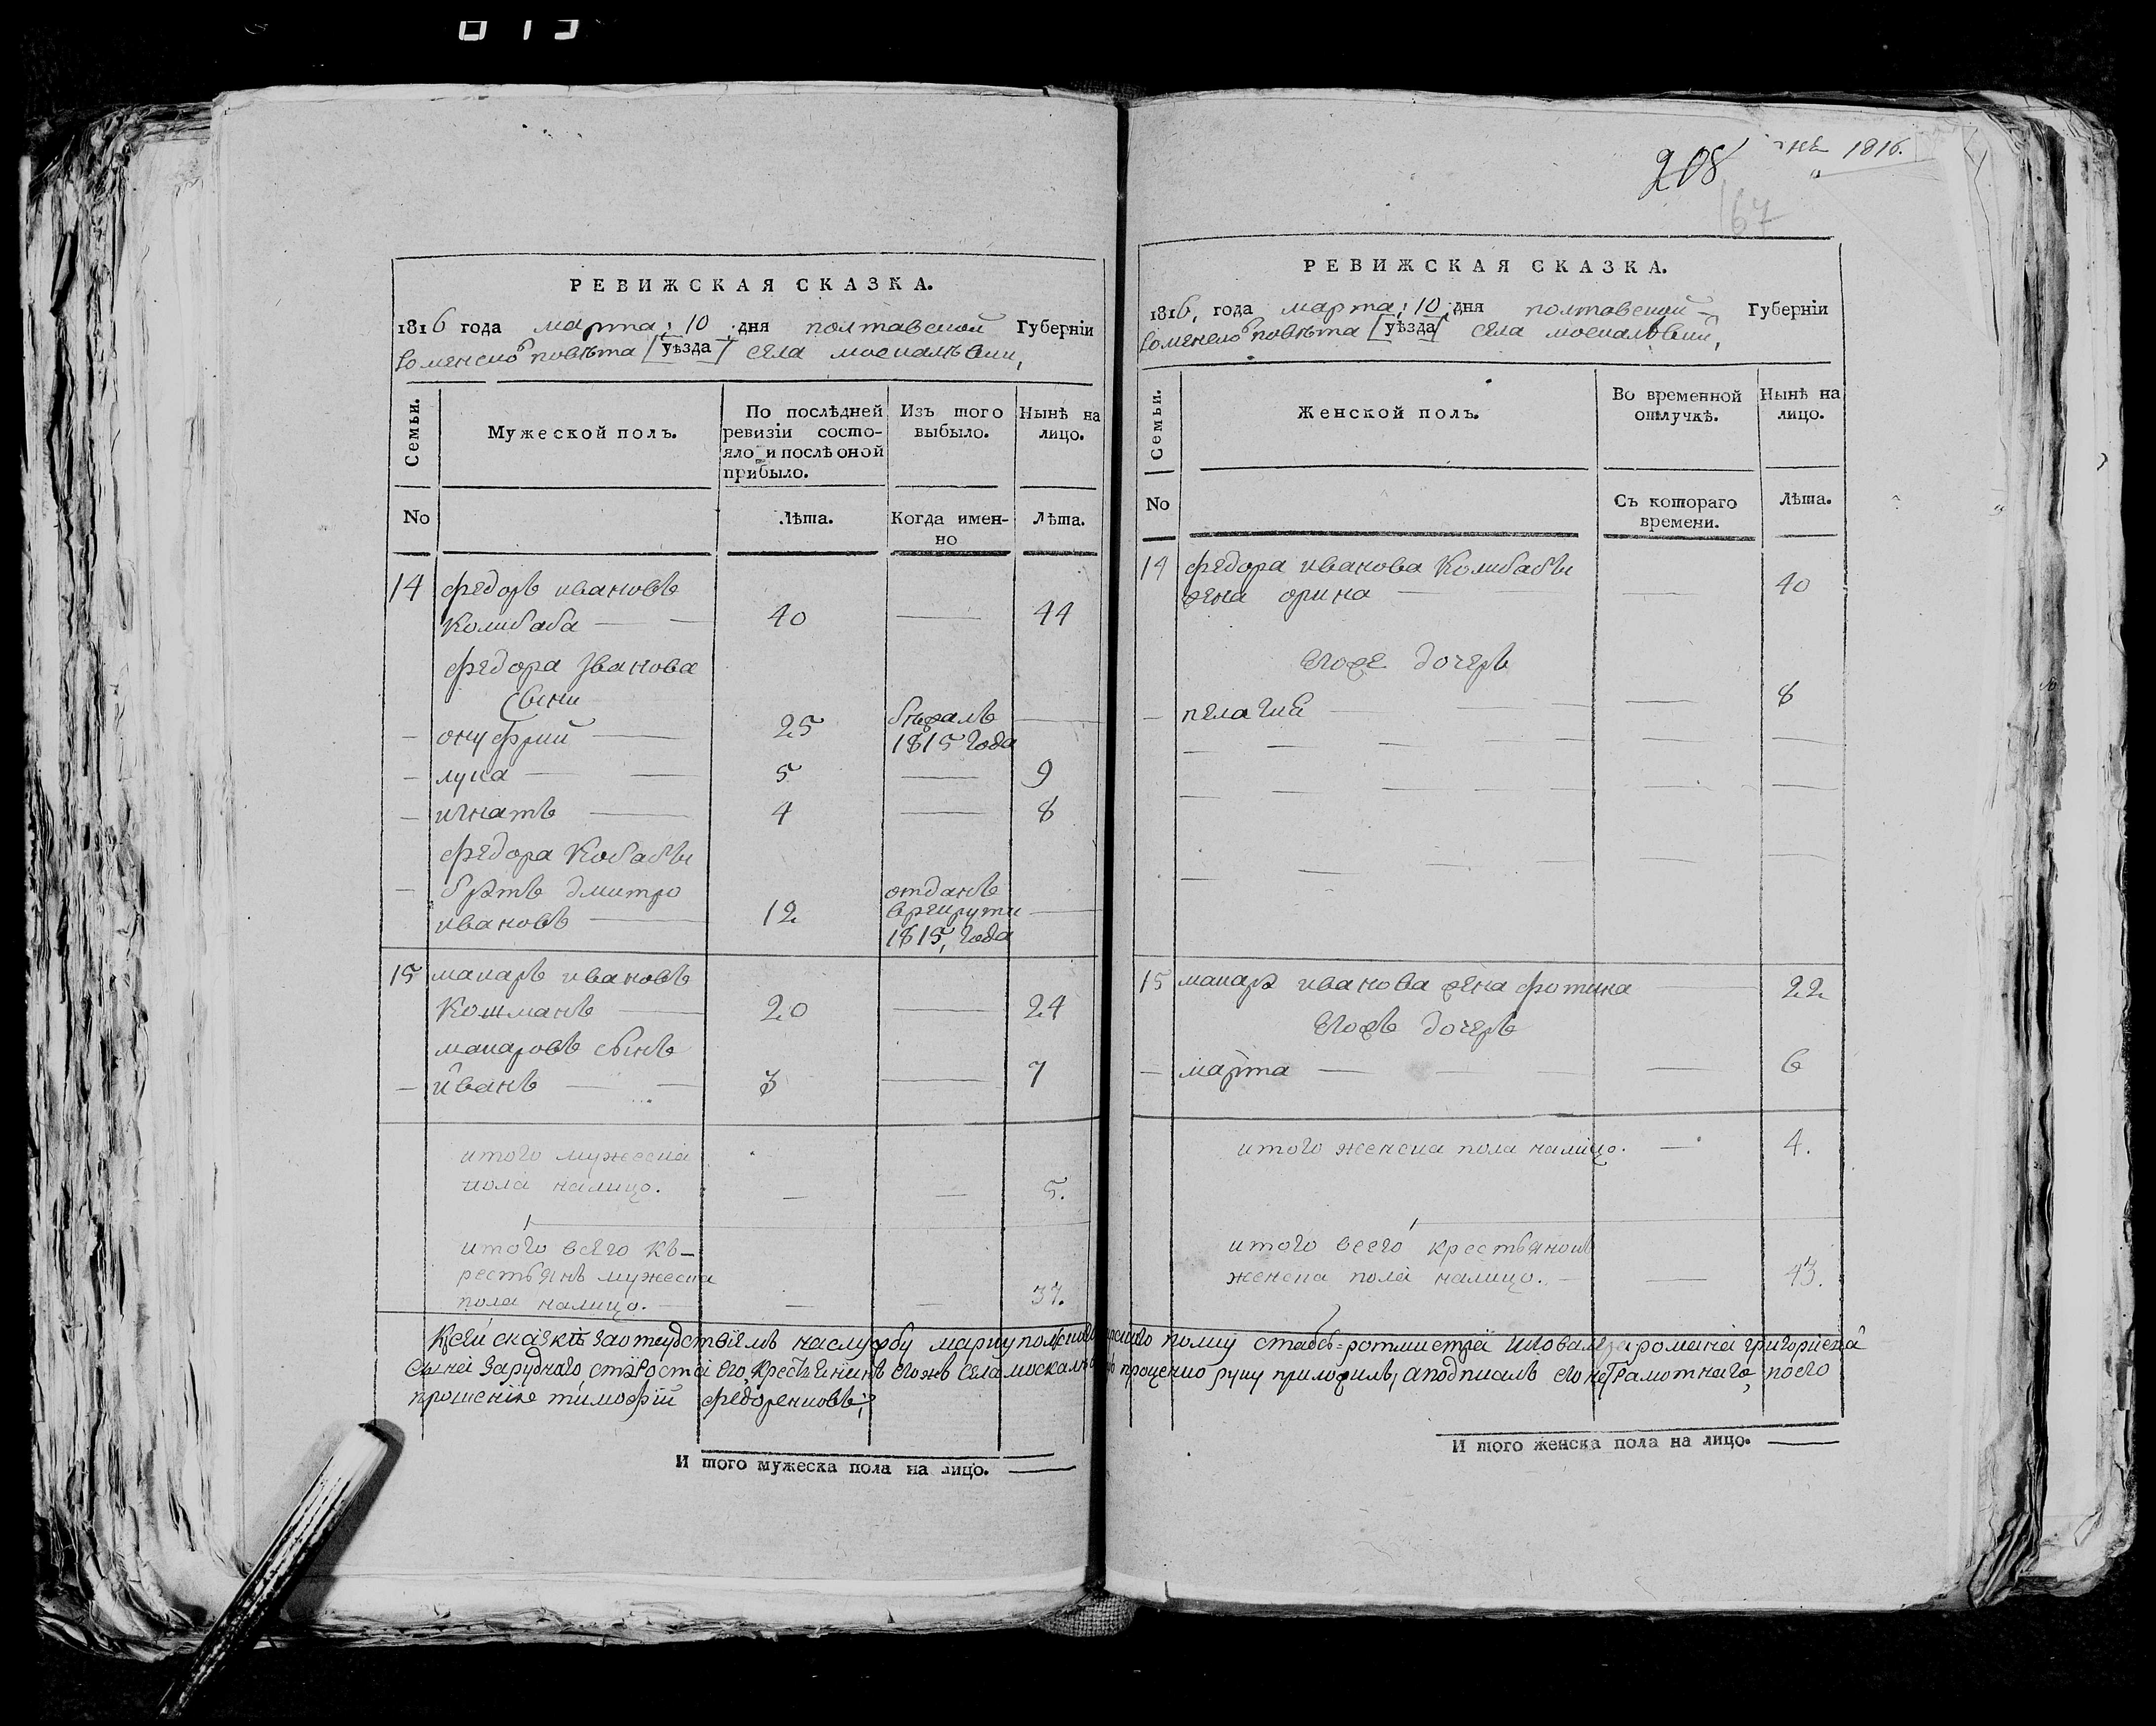 208
1816.
67
РЕВИЖСКАЯ СКАЗКА.
1816 года марта; 10 дня полтавской Губерніи
Роменско повѣта [уѣзда] села москалѣвки,
Семьи.
Мужеской полъ.
По послѣдней ревизіи состо-
яло и послѣ оной прибыло.
Изъ того выбыло.
Нынѣ на лицо.
No
Лѣта.
Когда имен-
но
Лѣта.
14 федоръ ивановъ
Колибаба — — 40 — 44
федора Iванова
сыни
— онуфрий — 25 —
1815 года
— лука — — 5 — 9
— игнатъ — 4 — 8
федора Кобабы
— братъ дмитро
ивановъ — 12 —
отданъ
врекрути
1815, года
15 макаръ ивановъ
Кошманъ — 20 — 24
макаровъ сынъ
— иванъ — — 3 — 7
итого мужеска
пола налицо. — — 5.
итого всего кѣ-
рестьянъ мужеска
пола налицо. — — — 37.
И того мужеска пола на лицо. —
РЕВИЖСКАЯ СКАЗКА.
1816, года марта; 10 дня полтавской Губерніи
Роменско повѣта [уѣзда] села москалѣвки,
Семьи.
Женской полъ.
Во временной отлучкѣ.
Нынѣ на лицо.
No
Съ котораго времени.
Лѣта.
14 федора иванова Колибабы
жена орина — — 40
егоже дочеръ
— пелагиа — — — 8
15 макара иванова жена фотина — 22
егожъ дочеръ
— марта — — — — 6
итого женска пола налицо. — 4.
итого всего крестьянокъ
женска пола налицо. — — 43.
Ксей сказкѣ заотсудствіемъ наслужбу мариуполского полку стабсъ=ротмистра романа григориева
сына Заруднаго, староста его, крестьенинъ егожъ села москалѣвки прошенію руку приложилъ, аподписалъ его неграмотнаго, поего
прошенію тимофій федоренковъ;
И того женска пола на лицо. —